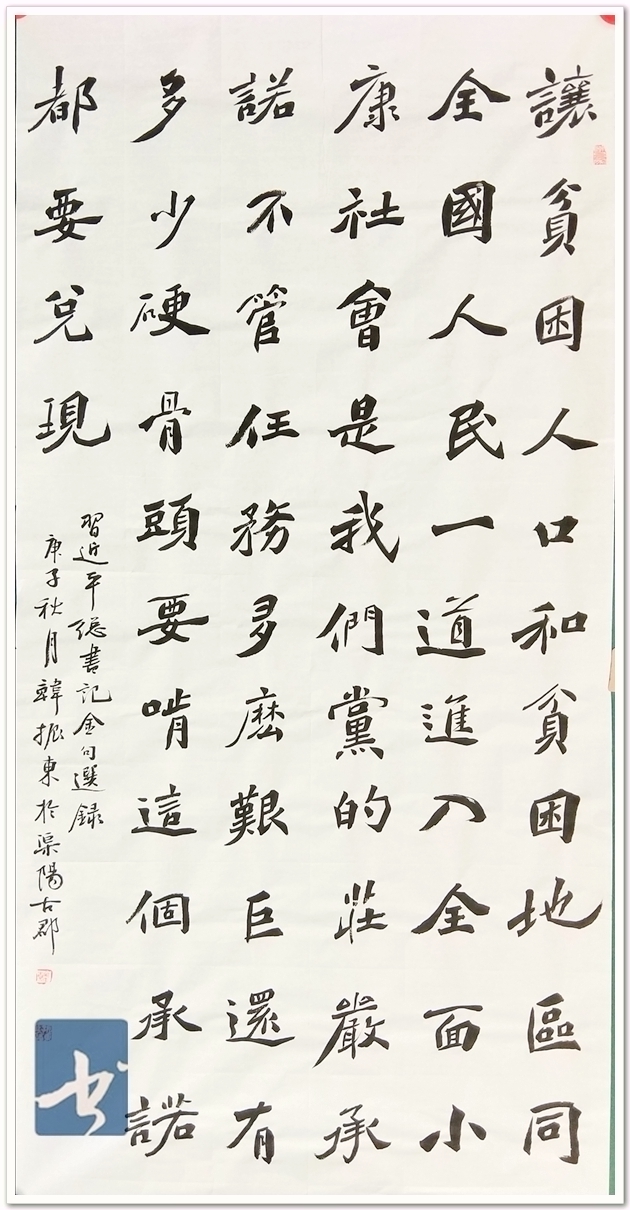 讓貧困人口和貧困地區同
全國人民一道進入全面小
康社會是我們黨的莊嚴承
諾不管任務多麽艱巨還有
多少硬骨頭要啃這個承諾
都要兌現
習近平總書記金句選錄
庚子秋月韓振東於渠陽古郡
书